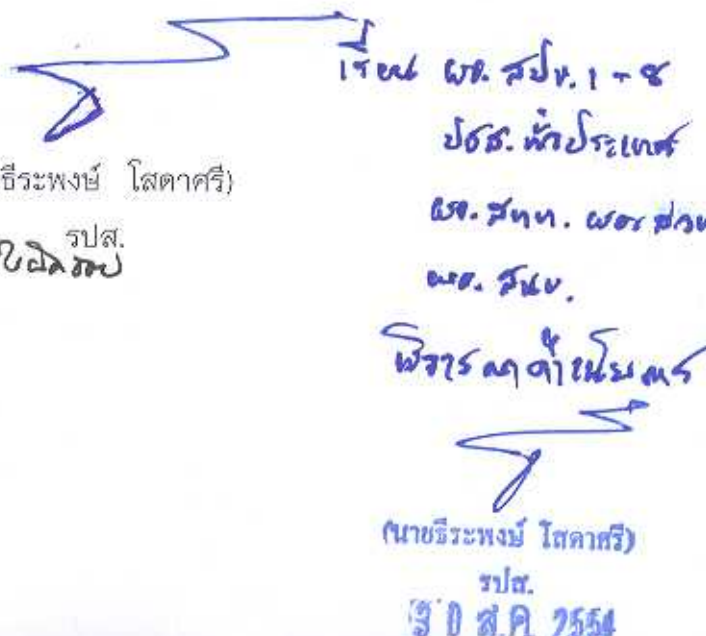 ธีระพงษ์ โสดาศรี)
รปส.
เรียน ผอ. สปข. 1 - 8
ปชส. ทั่วประเทศ
ผอ. สทท.
ผอ. สนข.
พิจารณาดำเนินการ
(นายธีระพงษ์ โสดาศรี)
รปส.
30 ส.ค. 2554